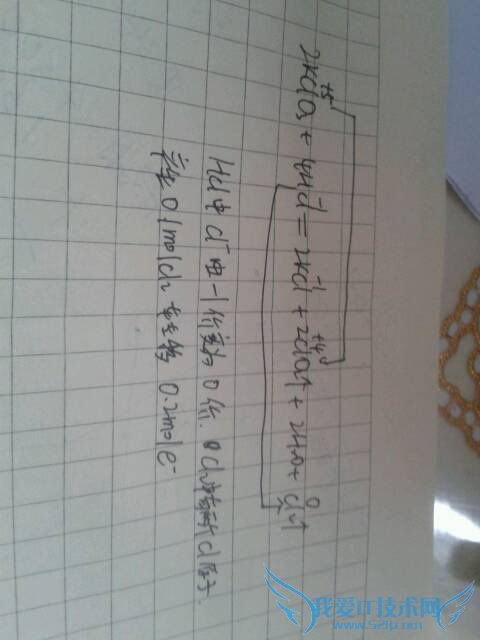 2KClO₃ + 4HCl = 2KCl + 2ClO₂↑ + 2H₂O + Cl₂↑
+5 -1 -1 +4 0
HCl中Cl⁻由-1价变为0价. Cl₂中有两个Cl原子.
产生0.1molCl₂ 转移 0.2mole⁻
我爱IT技术网
www.52ij.com